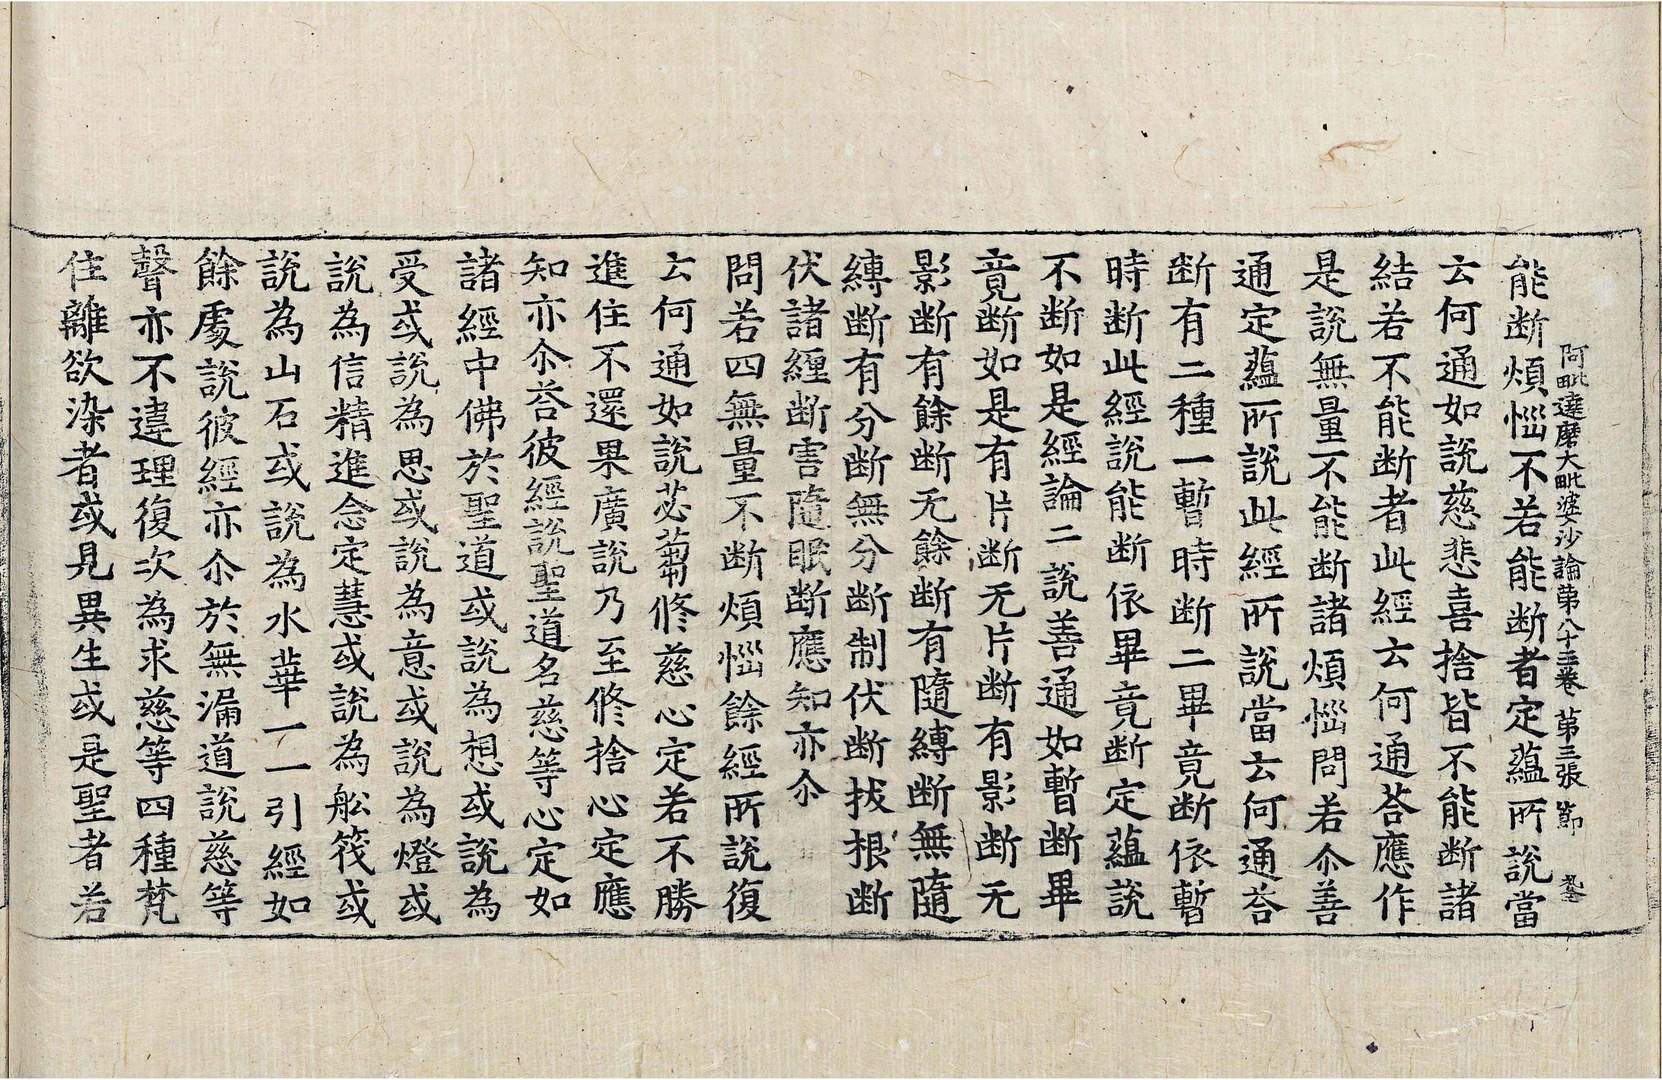 阿毗達磨大毗婆沙論第八十三卷 第三張 節
能断煩惱不若能断者定蘊所說當
云何通如說慈悲喜捨皆不能断諸
結若不能断者此經云何通荅應作
是說無量不能断諸煩惱問若尒善
通定蘊所說此經所說當云何通荅
断有二種一暫時断二畢竟断依暫
時断此經說能断依畢竟断定蘊說
不断如是經論二說善通如暫断畢
竟断如是有片断无片断有影断无
影断有餘断无餘断有隨縛断無隨
縛断有分断無分断制伏断拔根断
伏諸纏断害隨眠断應知亦尒
問若四無量不断煩惱餘經所說復
云何通如說苾蒭修慈心定若不勝
進住不還果廣說乃至修捨心定應
知亦尒荅彼經說聖道名慈等心定如
諸經中佛於聖道或說為想或說為
受或說為思或說為意或說為燈或
說為信精進念定慧或說為舩筏或
說為山石或說為水華一一引經如
餘處說彼經亦尒於無漏道說慈等
聲亦不違理復次為求慈等四種梵
住離欲染者或見異生或是聖者若